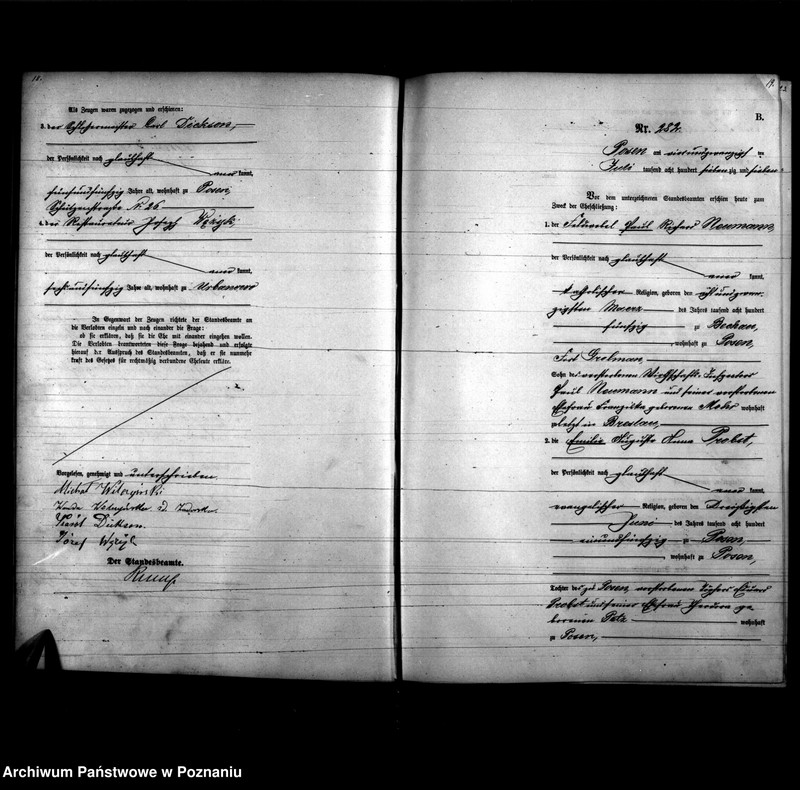 18.
Als Zeugen waren zugezogen und erschienen:
3. der Schlossermeister Carl Dickson,
der Persönlichkeit nach glaubhaft
kannt,
fünfundfünfzig Jahre alt, wohnhaft zu Posen,
Schützenstraße N 26
4. der Restaurateur Joseph
der Persönlichkeit nach glaubhaft
kannt,
sechsundfünfzig Jahre alt, wohnhaft zu Urbanowo
In Gegenwart der Zeugen richtete der Standesbeamte an
die Verlobten einzeln und nach einander die Frage:
ob sie erklären, daß sie die Ehe mit einander eingehen wollen.
Die Verlobten beantworteten diese Frage bejahend und erfolgte
hierauf der Ausspruch des Standesbeamten, daß er sie nunmehr
kraft des Gesetzes für rechtmäßig verbundene Eheleute erkläre.
Vorgelesen, genehmigt und unterschrieben
Michał
Dickson.
Józef
Der Standesbeamte.
19.
B.
Nr. 252.
Posen am vierundzwanzigsten
Juli tausend acht hundert siebenzig und sieben
Vor dem unterzeichneten Standesbeamten erschienen heute zum
Zweck der Eheschließung:
1. der Feldwebel Paul Richard Neumann,
der Persönlichkeit nach glaubhaft
kannt,
katholischer Religion, geboren den achtundzwan-
zigsten Maerz des Jahres tausend acht hundert
fünfzig zu Bechau,
wohnhaft zu Posen,
Fort Grolman,
Sohn des verstorbenen Wirthschafts-Inspectors
Paul Neumann und seiner verstorbenen
Ehefrau Franziska geborenen wohnhaft
zuletzt in Breslau,
2. die Emilie Auguste Anna Probst,
der Persönlichkeit nach glaubhaft
kannt,
evangelischer Religion, geboren den dreißigsten
Juni des Jahres tausend acht hundert
einundfünfzig zu Posen,
wohnhaft zu Posen,
Tochter des zu Posen verstorbenen
Probst und seiner Ehefrau ge-
borenen wohnhaft
zu Posen,
Archiwum Państwowe w Poznaniu